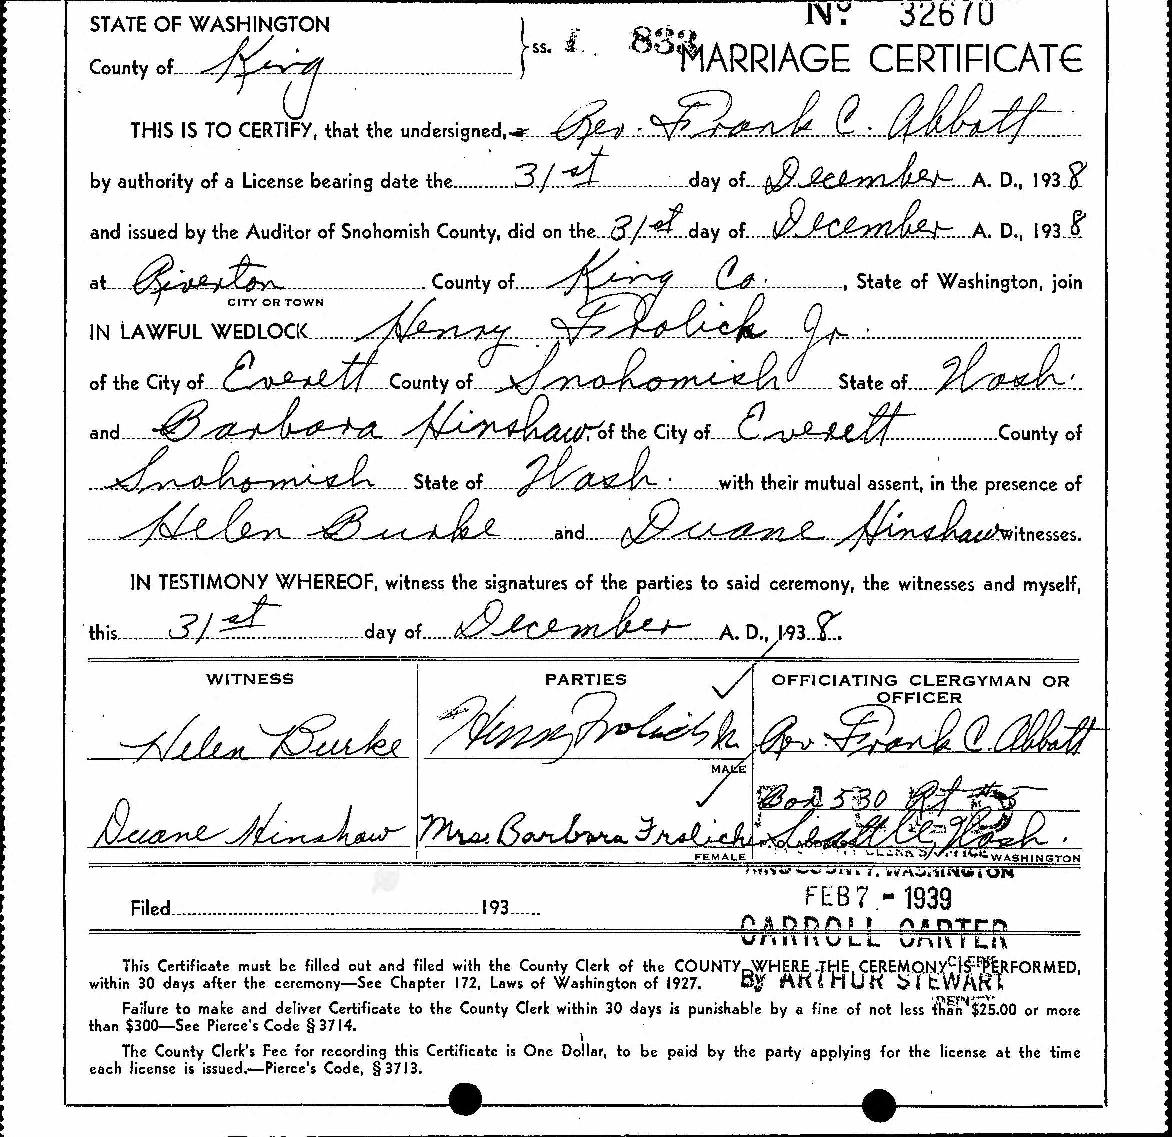 Nº 32670
STATE OF WASHINGTON
County of King
ss.
833
MARRIAGE CERTIFICATE
THIS IS TO CERTIFY, that the undersigned, a Rev. Frank C. Abbott
by authority of a License bearing date the 31st day of December A. D., 1938
and issued by the Auditor of Snohomish County, did on the 31st day of December A. D., 1938
at Riverton County of King Co. , State of Washington, join
CITY OR TOWN
IN LAWFUL WEDLOCK Henry Frolick Jr.
of the City of Everett County of Snohomish State of Wash.
and Barbara Hinshaw, of the City of Everett County of
Snohomish State of Wash. with their mutual assent, in the presence of
Helen Burke and Duane Hinshaw witnesses.
IN TESTIMONY WHEREOF, witness the signatures of the parties to said ceremony, the witnesses and myself,
this 31st day of December A. D., 1938.
WITNESS PARTIES OFFICIATING CLERGYMAN OR
OFFICER
Helen Burke Henry Frolick Jr. Rev. Frank C. Abbott
MALE
Box 530 Rt #5
Duane Hinshaw Mrs. Barbara Frolich Seattle, Wash.
FEMALE WASHINGTON
KING COUNTY, WASHINGTON
FEB 7 - 1939
Filed 193
CARROLL CARTER
This Certificate must be filled out and filed with the County Clerk of the COUNTY WHERE THE CEREMONY IS PERFORMED,
within 30 days after the ceremony—See Chapter 172, Laws of Washington of 1927.
By ARTHUR STEWART
DEPUTY
Failure to make and deliver Certificate to the County Clerk within 30 days is punishable by a fine of not less than $25.00 or more
than $300—See Pierce's Code § 3714.
The County Clerk's Fee for recording this Certificate is One Dollar, to be paid by the party applying for the license at the time
each license is issued.—Pierce's Code, § 3713.